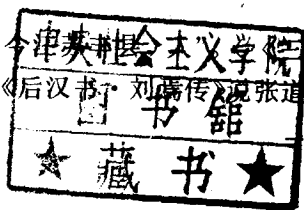 天津社会主义学院
《后汉书·刘焉传》说张道
图书馆
★藏书★